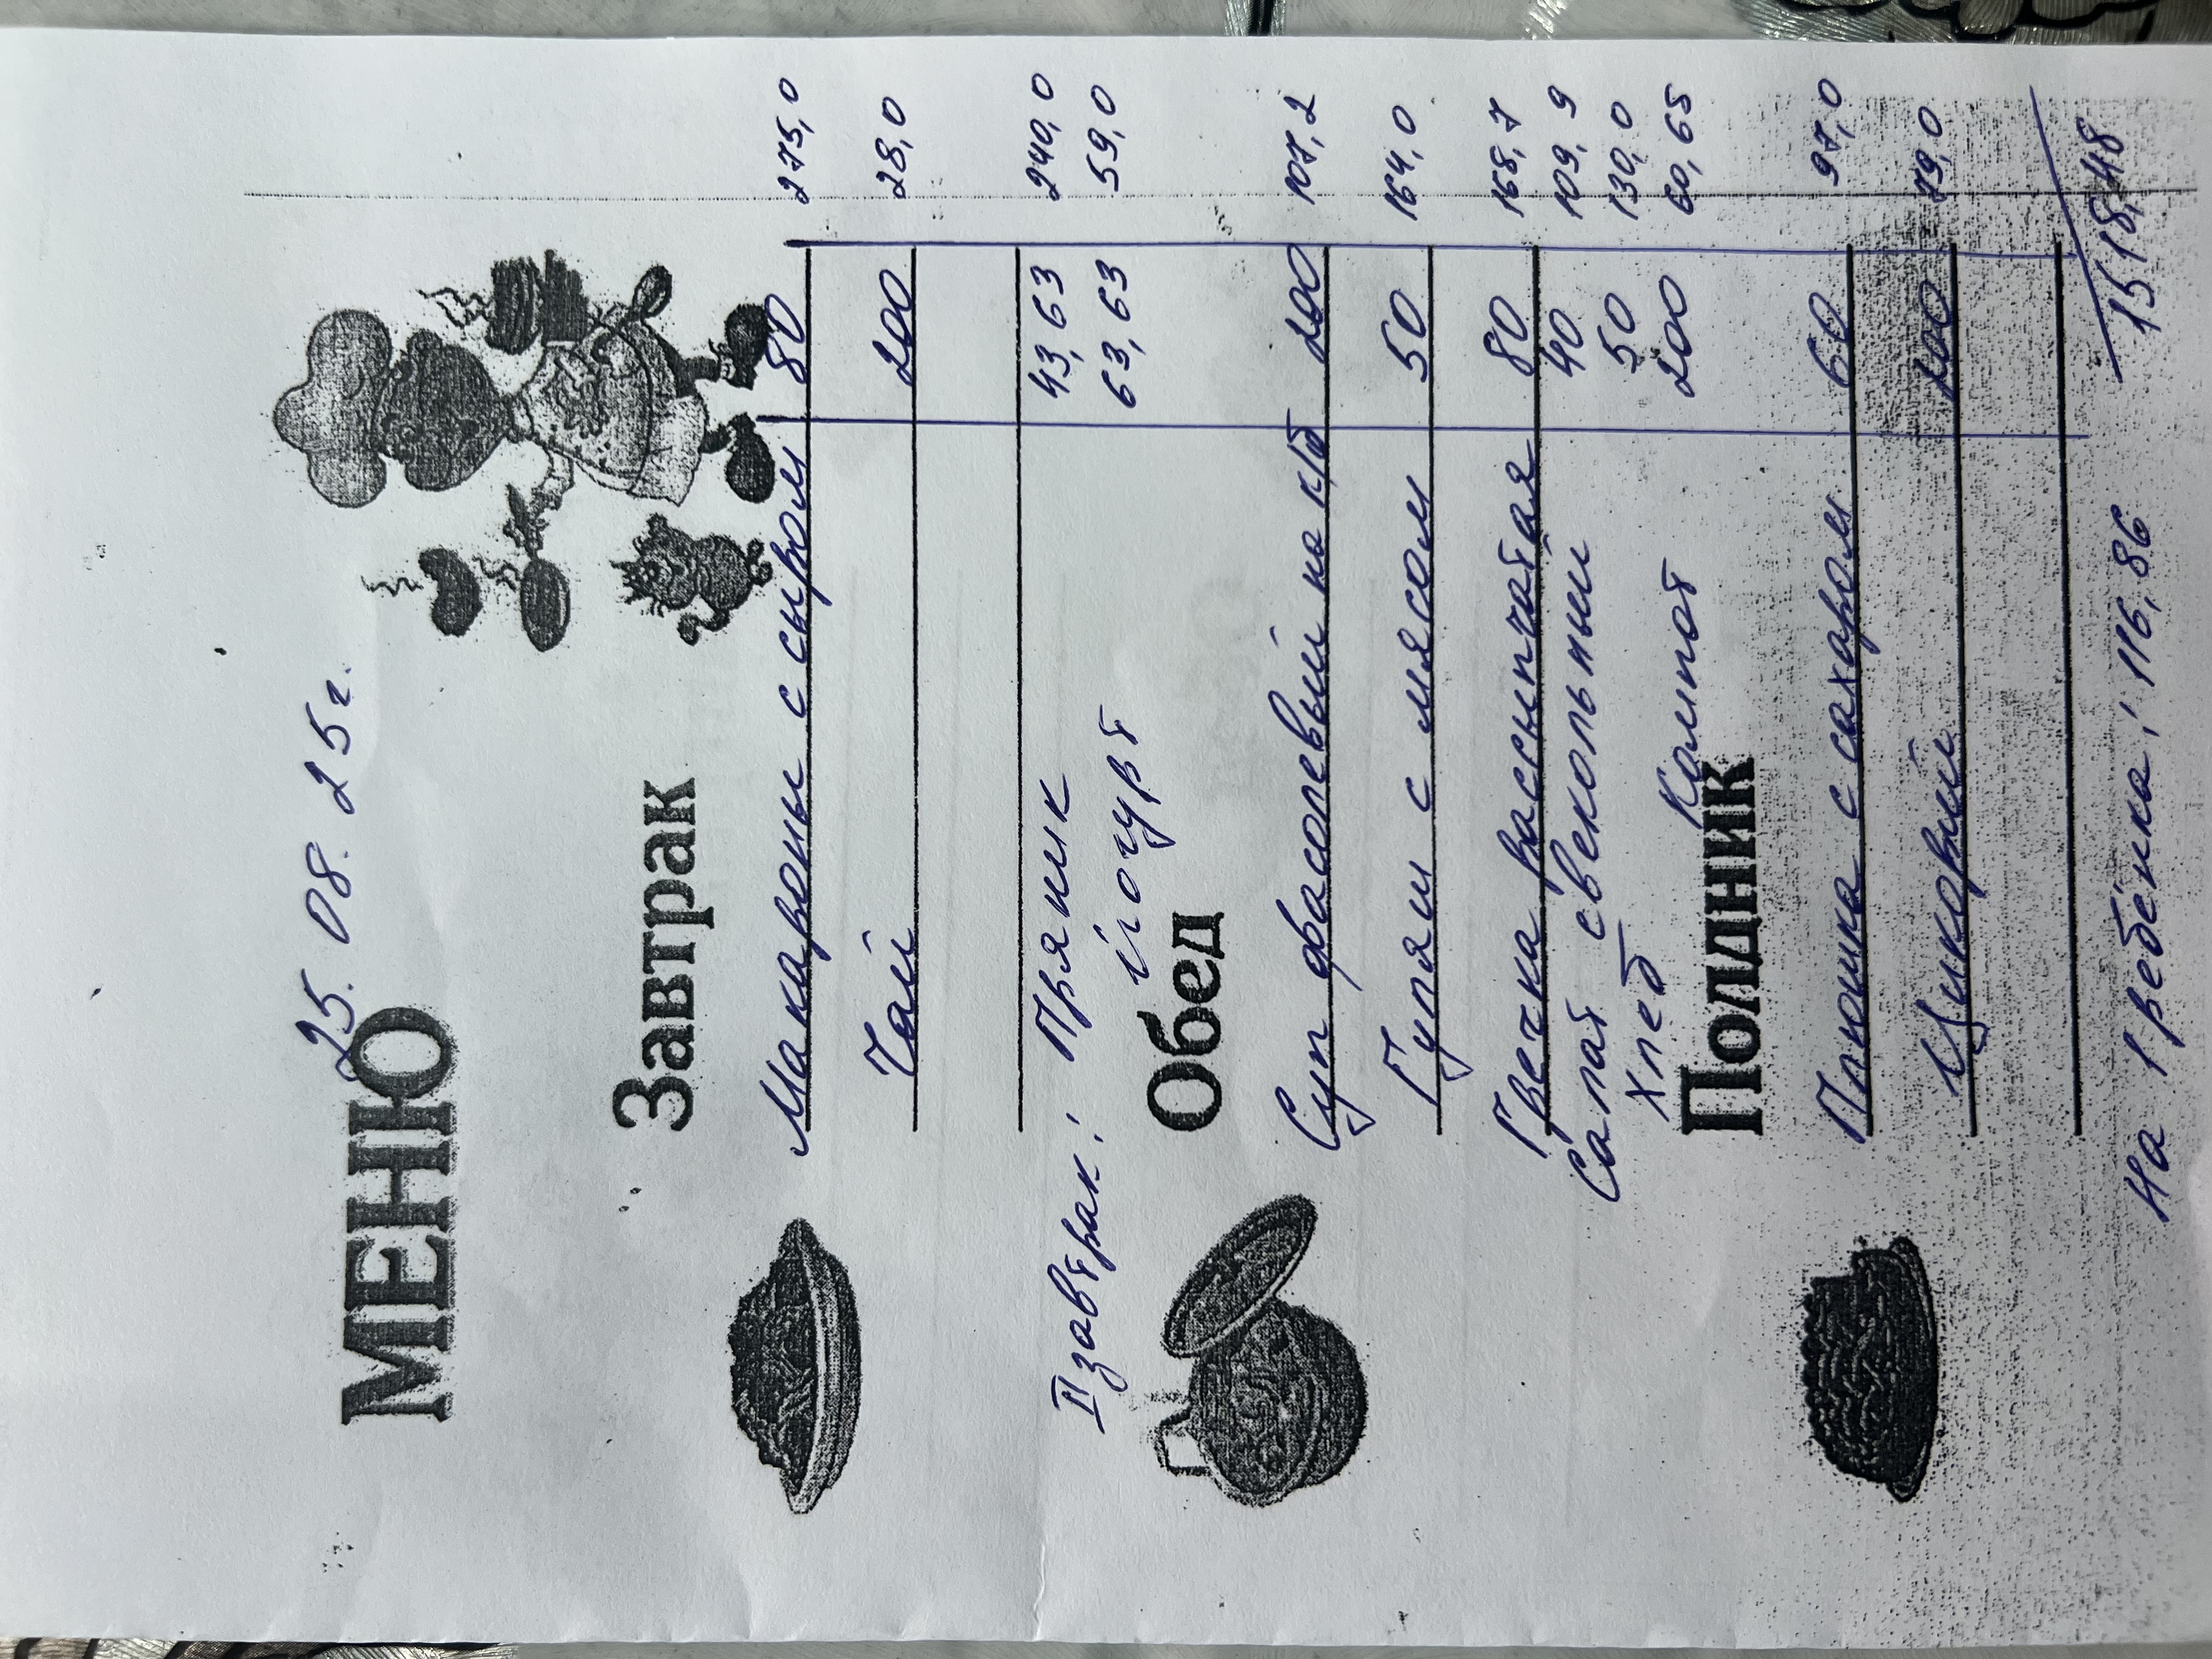 25.08.25г.
МЕНЮ
Завтрак
Макароны с сыром 80 275,0
Чай 200 28,0
II завтрак: Пряник 43,63 240,0
йогурт 63,63 59,0
Обед
Суп фасолевый на к/б 200 107,2
Гуляш с мясом 50 164,0
Гречка рассыпчатая 80 168,7
Салат свекольный 40 109,9
Хлеб 50 130,0
Компот 200 60,65
Полдник
Плюшка с сахаром 60 97,0
Цикорий 200 79,0
1518,48
На 1 ребёнка: 116,86